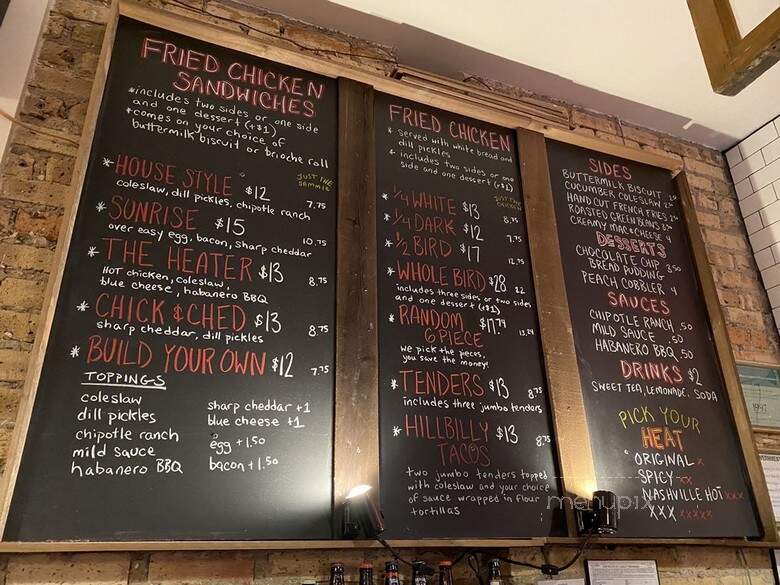 FRIED CHICKEN
SANDWICHES
*includes two sides or one side
and one dessert (+$1)
*comes on your choice of
buttermilk biscuit or brioche roll
JUST THE
SAMMIE
* HOUSE STYLE $12 7.75
coleslaw, dill pickles, chipotle ranch
* SUNRISE $15 10.75
over easy egg, bacon, sharp cheddar
* THE HEATER $13 8.75
HOT chicken, coleslaw,
blue cheese, habanero BBQ
* CHICK & CHED $13 8.75
sharp cheddar, dill pickles
* BUILD YOUR OWN $12 7.75
TOPPINGS
coleslaw
dill pickles
chipotle ranch
mild sauce
habanero BBQ
sharp cheddar +1
blue cheese +1
egg +1.50
bacon +1.50
FRIED CHICKEN
* served with white bread and
dill pickles
* includes two sides or one
side and one dessert (+$1)
JUST THE
CHICKEN
* 1/4 WHITE $13 8.75
* 1/4 DARK $12 7.75
* 1/2 BIRD $17 12.75
* WHOLE BIRD $28 22
includes three sides or two sides
and one dessert (+$1)
* RANDOM $17.74
6 PIECE
we pick the pieces,
you save the money!
* TENDERS $13 8.75
includes three jumbo tenders
* HILLBILLY $13 8.75
TACOS
two jumbo tenders topped
with coleslaw and your choice
of sauce wrapped in flour
tortillas
SIDES
BUTTERMILK BISCUIT
CUCUMBER COLESLAW
HAND CUT FRENCH FRIES
ROASTED GREEN BEANS
CREAMY MAC & CHEESE 4
DESSERTS
CHOCOLATE CHIP
BREAD PUDDING 3.50
PEACH COBBLER 4
SAUCES
CHIPOTLE RANCH .50
MILD SAUCE .50
HABANERO BBQ .50
DRINKS $2
SWEET TEA, LEMONADE, SODA
PICK YOUR
HEAT
ORIGINAL x
SPICY xx
NASHVILLE HOT xxx
XXX xxxxx
menupix
1997